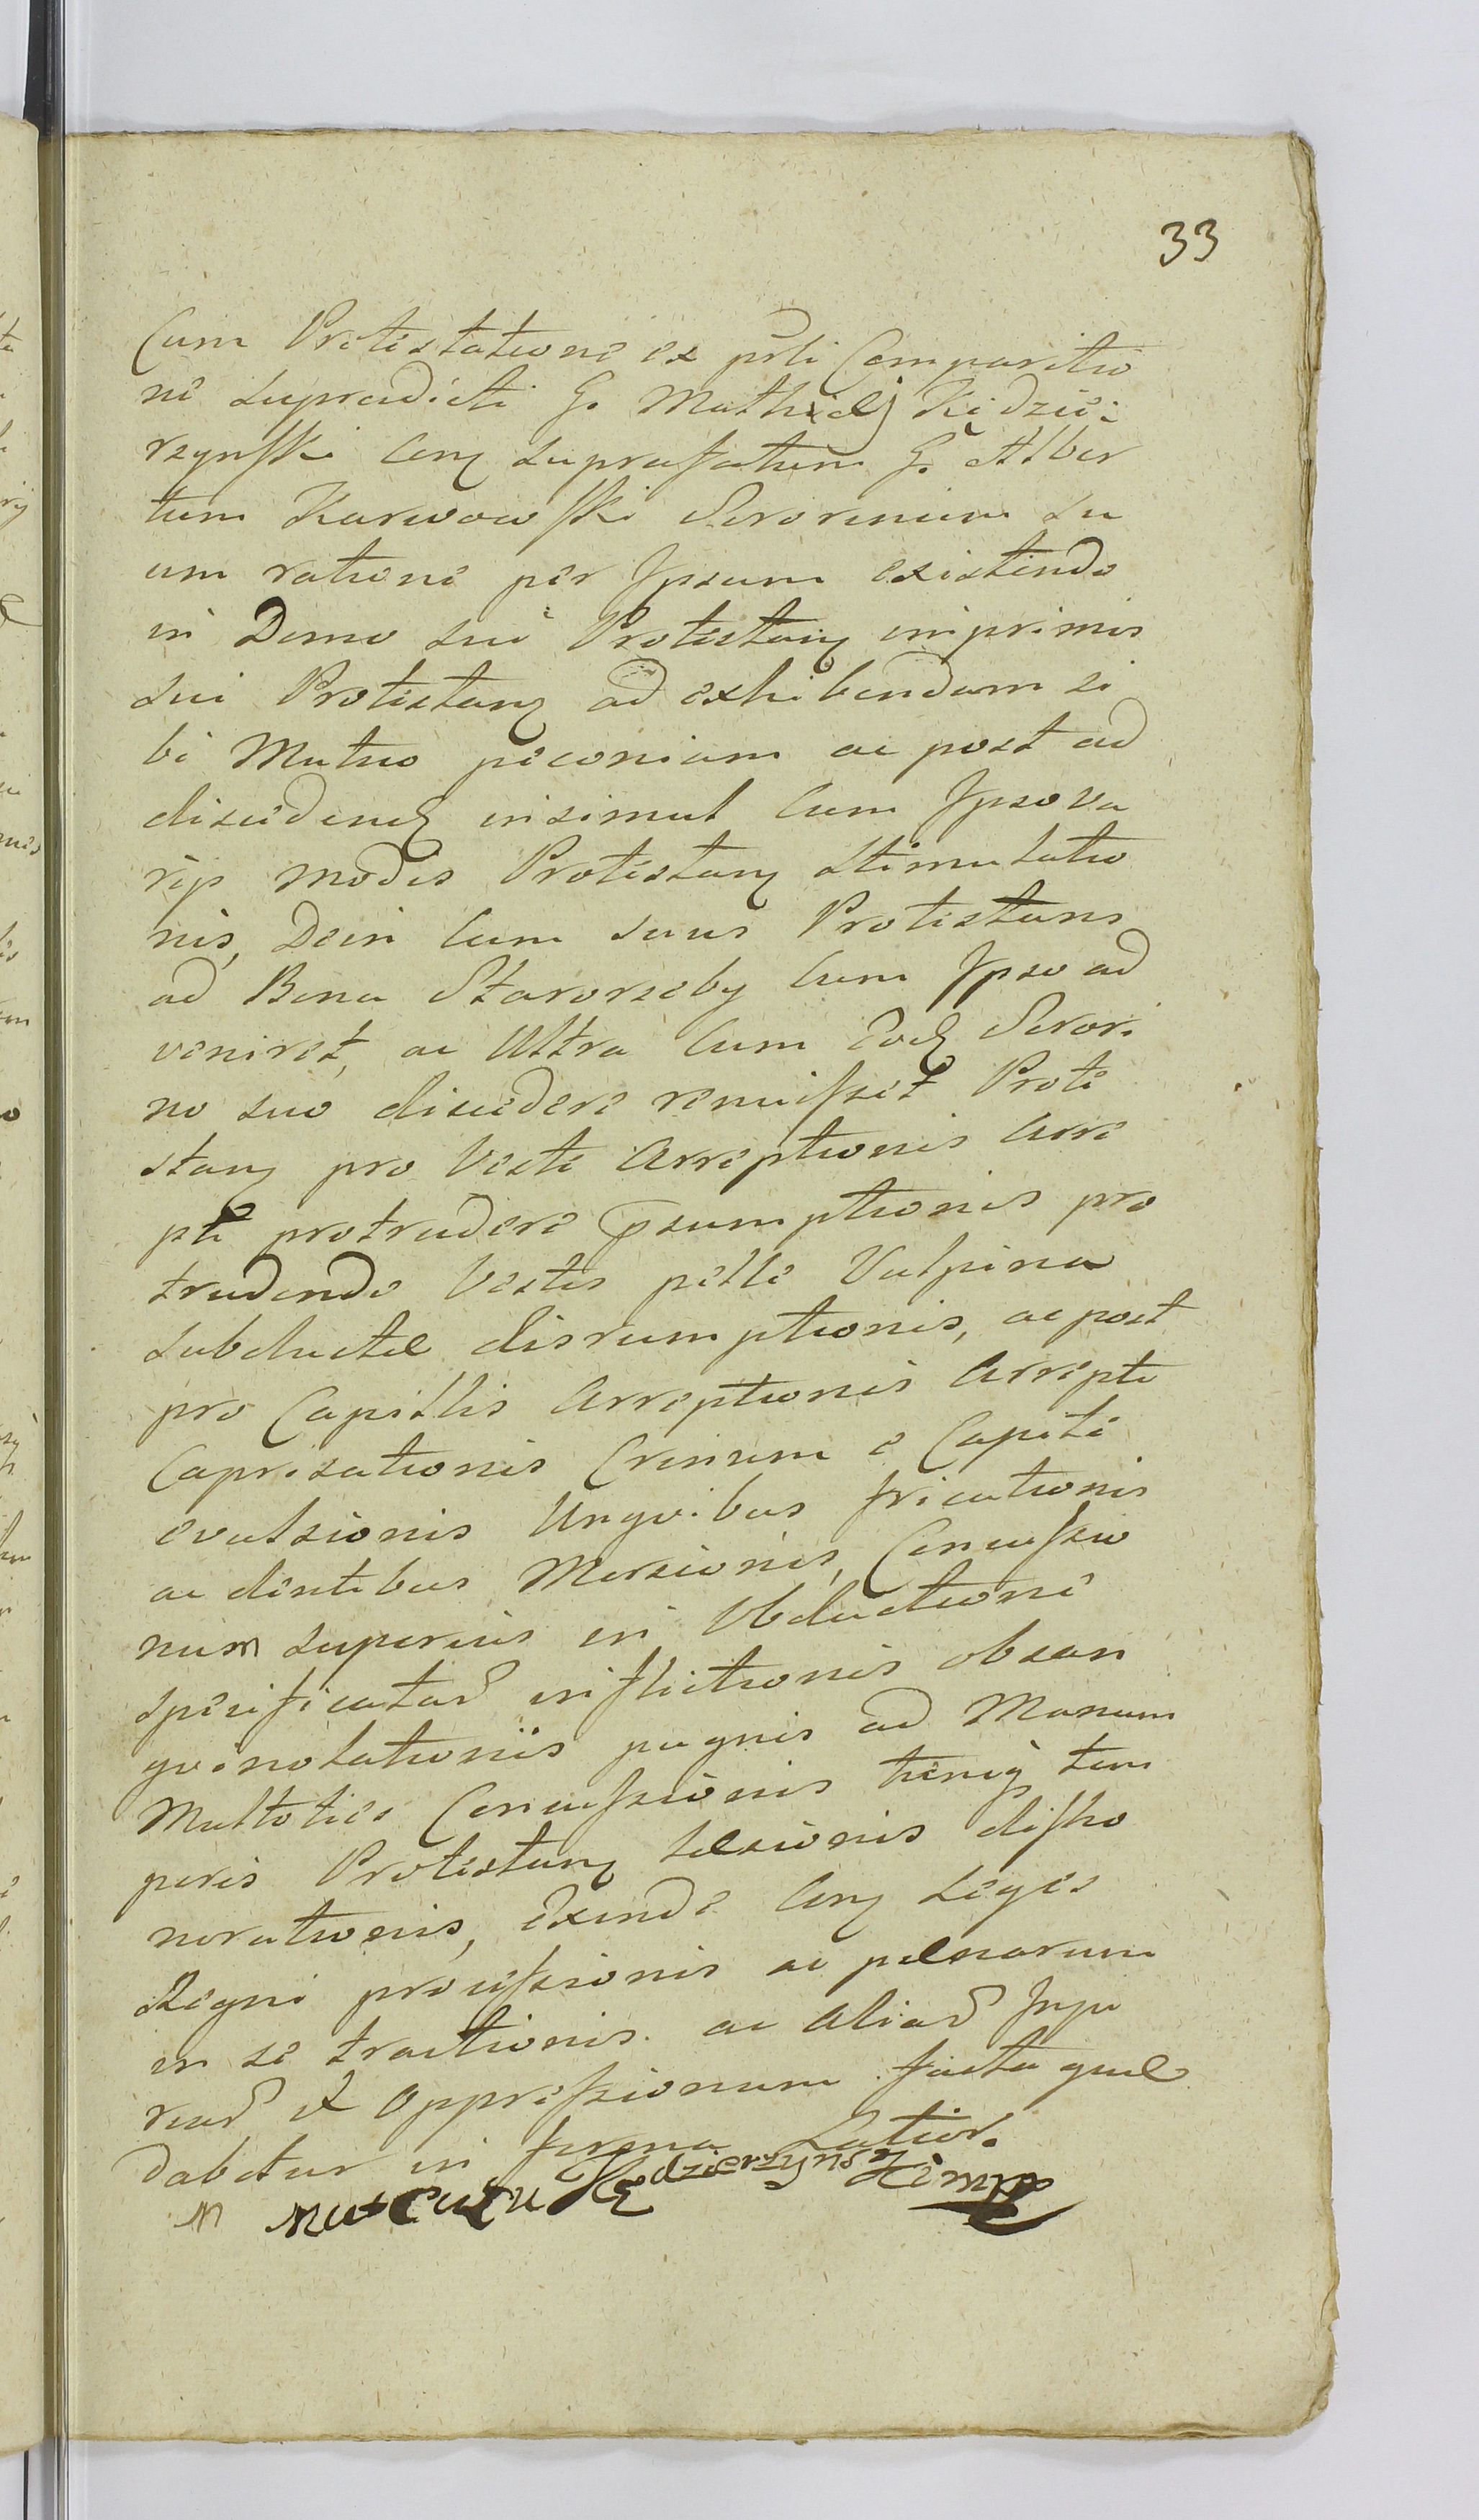 33
Cum Protestatione ex pñti Comparitio
ne supradicti G. Mathiæ Kędzie:
rzynski Con suprafatum G. Alber
tum Karwowski Sororinum su
um ratione per Ipsum existendo
in Domo sui Protestan imprimis
sui Protestan ad exhibendam si
bi Mutuo peconiam ac post ad
discedend insimul cum Ipso va
rijs modis Protestan stimulatio
nis, Dein cum suus Protestans
ad Bona Starorzeby cum Ipso ad
veniret, ac Ultra cum Eod Sorori
no suo discedere renuisset Prote
stan pro Veste Arreptionis Arre
pti protrudere psumptionis pro
trudendo Vestis pelle Vulpina
subductæ disrumptionis, ac post
pro Capillis Arreptionis Arrepti
Caprisationis Crinum e Capite
evulsionis Ungvibus fricationis
ac dentibus Morsionis, Concussio
num superius in Obductione
specificatar inflictionis obsan
gvinolationis pugnis ad Manum
Multoties Concussionis
peris Protestan læsionis disho
norationis, Exinde Con Leges
Regni processionis ac pænarum
in se tractionis ac aliar Inju
riar et Oppressionum facta quæ
dabitur in forma Latior.
M Mateusz Kędzierzynski